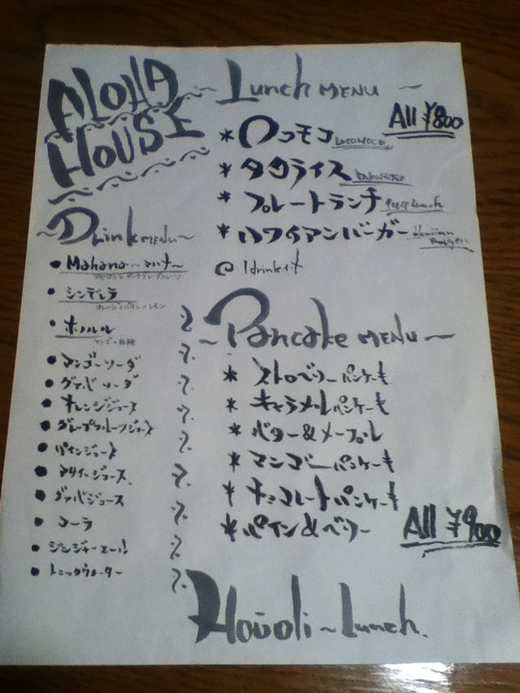 ALOHA
HOUSE
Lunch MENU
All ¥800
* ロコモコ LOCOMOCO
* タコライス
* プレートランチ Plate Lunch
* ハワイアンバーガー Hawaiian Burger
1drink付
Drink MENU
• Mahana〜マハナ〜
• シンデレラ
オレンジ・パイン・レモン
• ホノルル
• マンゴーソーダ
• グァバソーダ
• オレンジジュース
• グレープフルーツジュース
• パインジュース
• グァバジュース
• コーラ
• ジンジャーエール
• トニックウォーター
Pancake MENU
* ストロベリーパンケーキ
* キャラメルパンケーキ
* バター&メープル
* マンゴーパンケーキ
* チョコレートパンケーキ
* パイン&ベリー
All ¥900
Hauoli~Lunch.